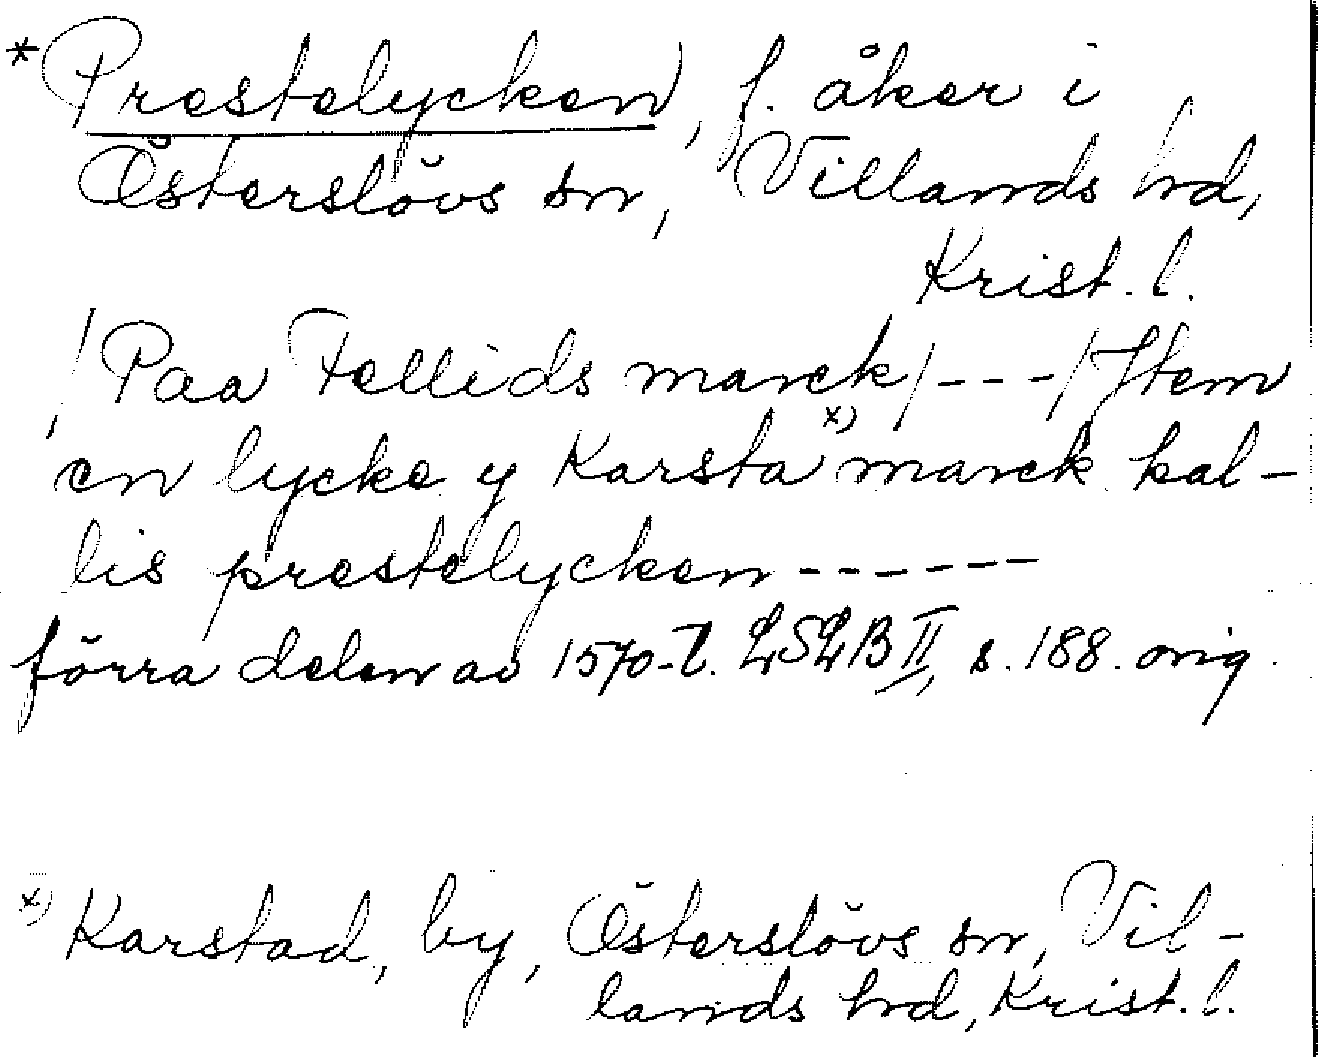 *Prestelycken, f. åker i
Österslövs sn, Villands hd,
Krist. l.
/Paa Fellids marck/---/Jtem
en lycke y Karsta x) marck kal-
lis prestelycken------
förra delen av 1570-t. LSLB II, s. 188. orig.
x) Karstad, by, Österslövs sn, Vil-
lands hd, Krist. l.